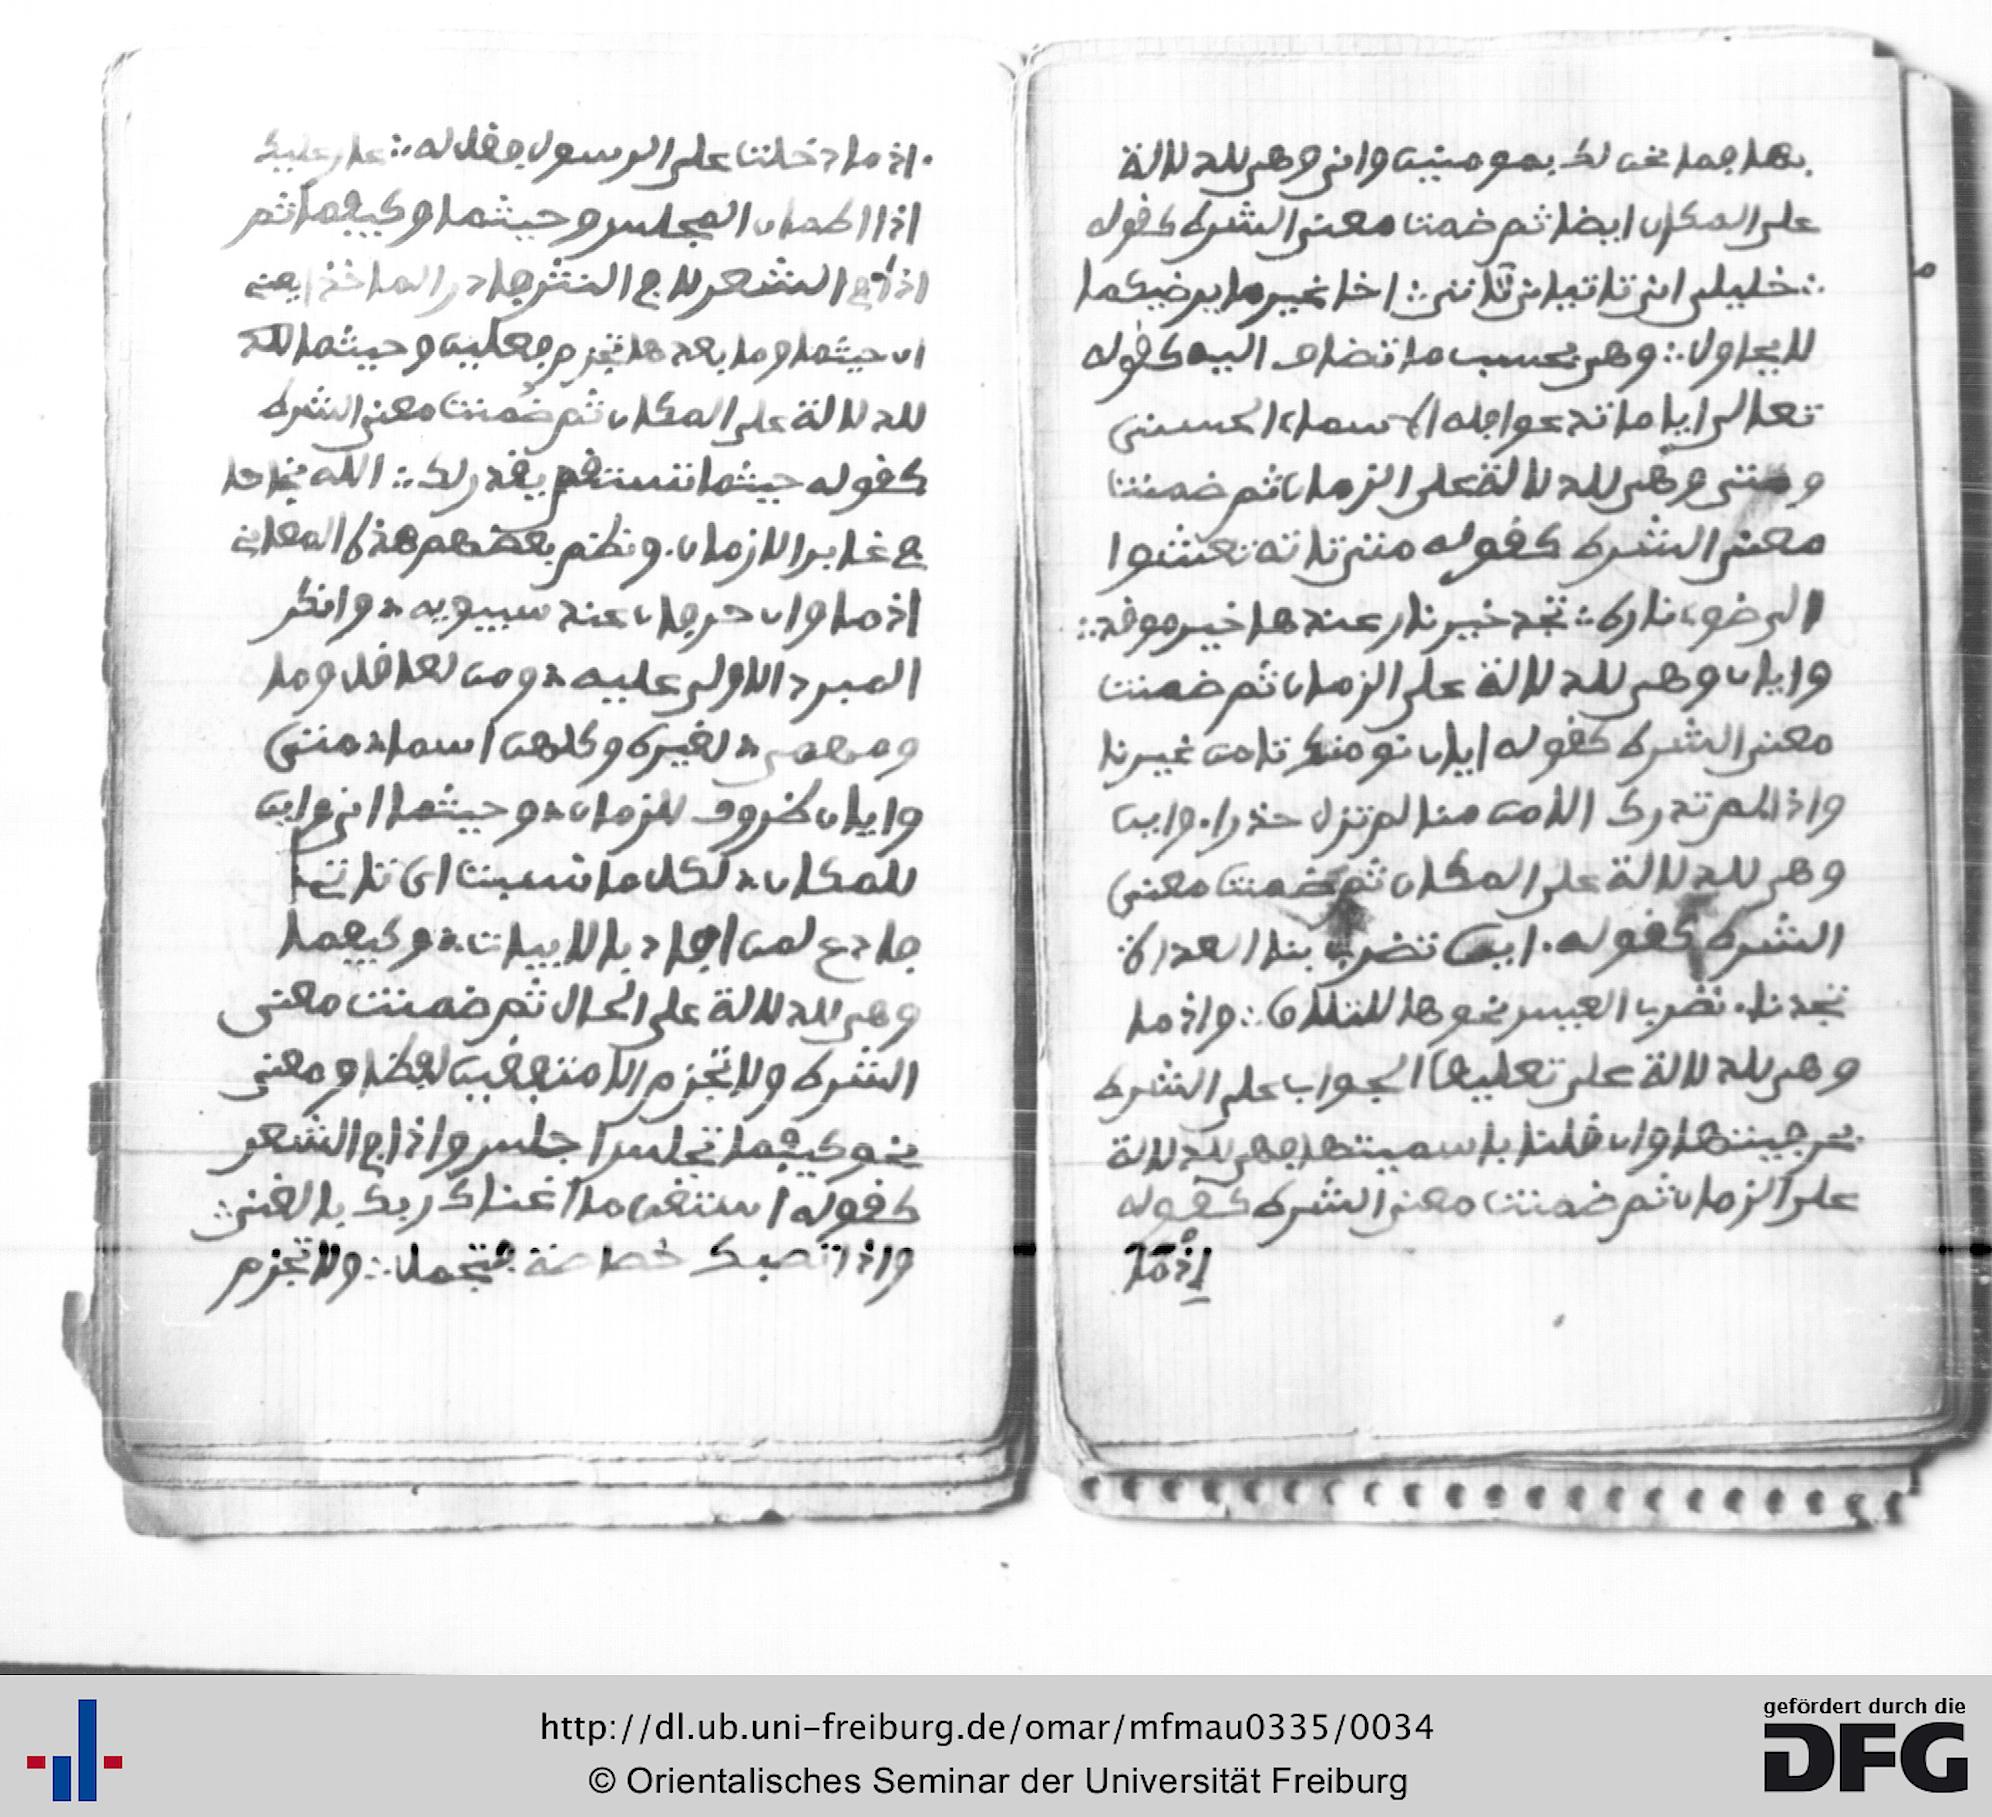 بها فما نحن لك بمومنين وانى وهى للدلالة
على المكان ايضا ثم ضمنت معنى الشرط كقوله
∴ خليلى انى تاتيانى تاتنى ∴ اخا غير ما يرضيكما
لا يحاول ∴ وهى بحسب ما تضاف اليه كقوله
تعالى ايا ما تدعوا فله الاسماء الحسنى
ومتى وهى للدلالة على الزمان ثم ضمنت
معنى الشرط كقوله متى تاته تعشوا
الى ضوء ناره ∴ تجد خير نار عندها خير موقد ∴
وايان وهى للدلالة على الزمان ثم ضمنت
معنى الشرط كقوله ايان نومنك تامن غيرنا
واذا لم تدرك الامن منا لم تزل حذرا. واين
وهى للدلالة على المكان ثم ضمنت معنى
الشرط كقوله. اين تضرب بنا العداة
تجدنا. نضرب العيس نحوها للتلاق ∴ واذ ما
وهى للدلالة على تعليق الجواب على الشرط
بحرفيتها وان قلنا باسميتها فهى للدلالة
على الزمان ثم ضمنت معنى الشرط كقوله
إِذْمَا
. اذ ما دخلت على الرسول فقل له ∴ عليك
اذا اطمان المجلس وحيثما وكيفما ثم
اذا فى الشعر لا فى النثر فادر الماخذا يعنى
ان حيثما وما بعدها تجزم فعلين وحيثما
للدلالة على المكان ثم ضمنت معنى الشرط
كقوله حيثما تستقم يقدر لك ∴ الله نجاحا
فى غابر الازمان. ونظم بعضهم هذه المعانى
اذ ما وان حرفان عند سيبويه * وانظر
المبرد الاولى عليه * ومن لعاقل وما
ومهمى * لغيره وكلهن اسما * متى
وايان ظروف للزمان * وحيثما انى واين
للمكان * لكل ما نسبت اى تاتى
فادع لمن افاد بالابيات * وكيفما
وهى للدلالة على الحال ثم ضمنت معنى
الشرط ولا تجزم الا متفقين لفظا ومعنى
نحو كيفما تجلس اجلس واذا فى الشعر
كقوله استغن ما اغناك ربك بالغنى ∴
واذا تصبك خصاصة فتجمل ∴ ولا تجزم
http://dl.ub.uni-freiburg.de/omar/mfmau0335/0034
© Orientalisches Seminar der Universität Freiburg
gefördert durch die
DFG